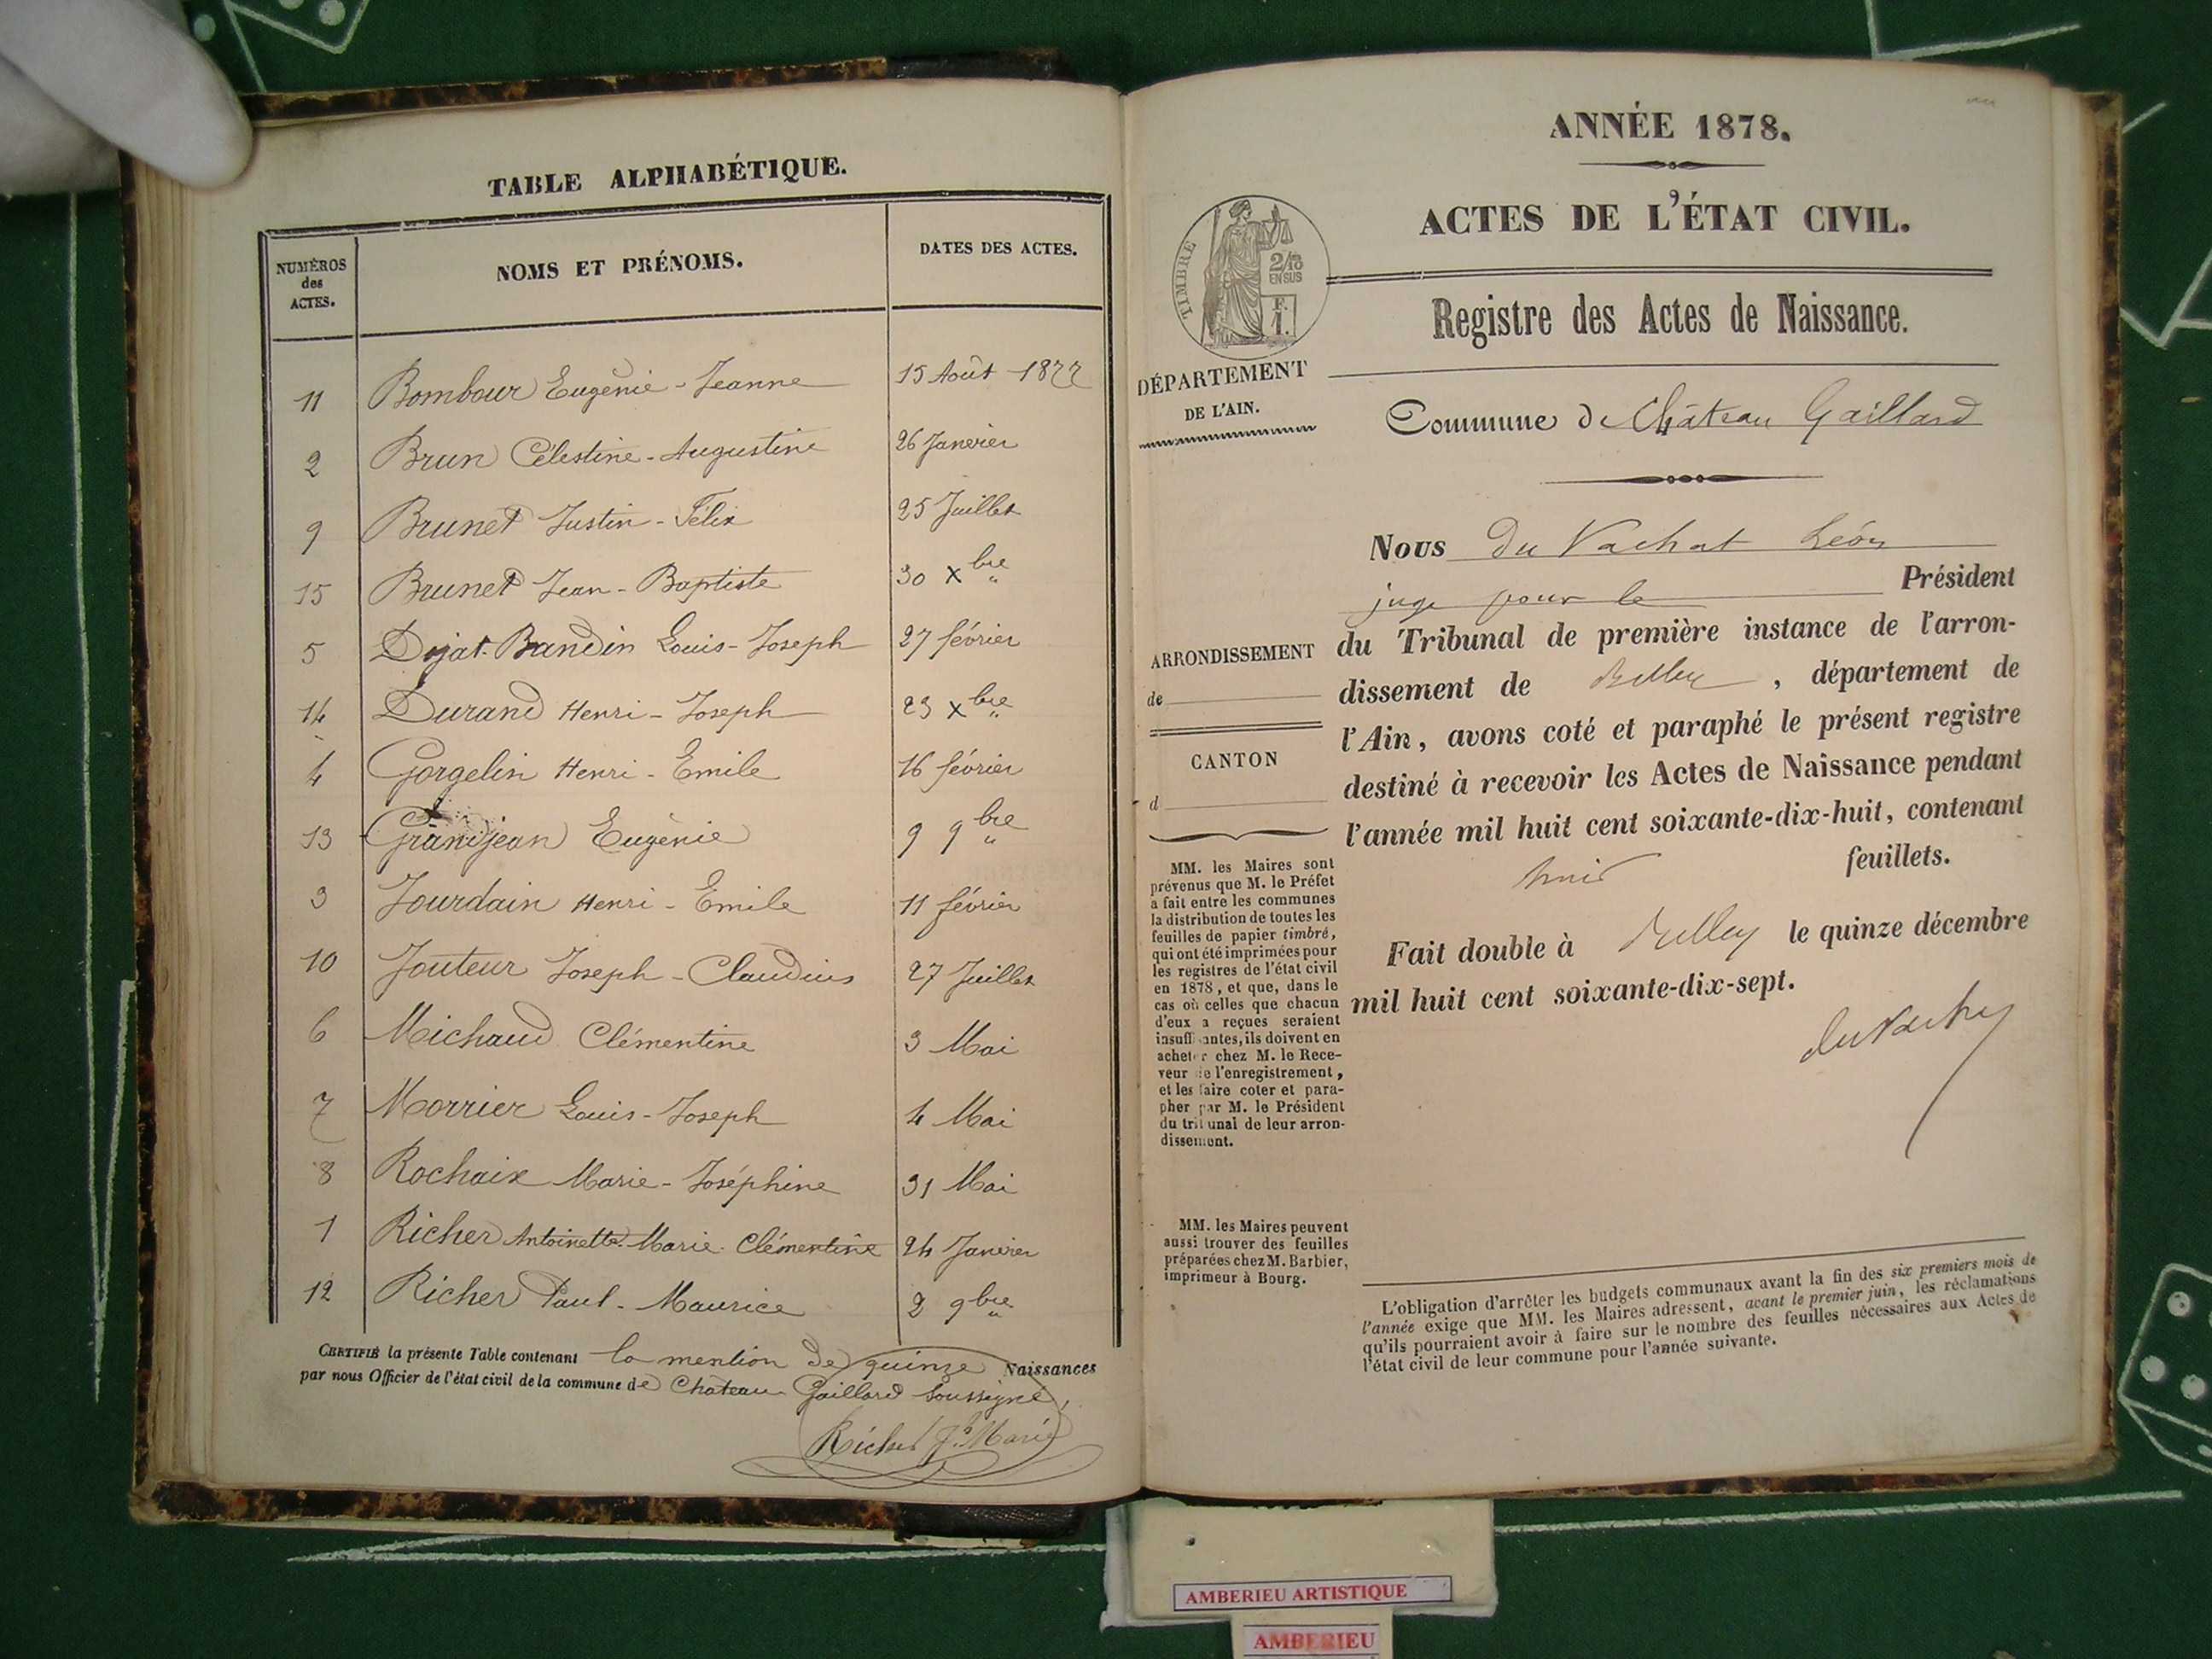 TABLE ALPHABÉTIQUE.
NUMÉROS des ACTES. NOMS ET PRÉNOMS. DATES DES ACTES.
11 Bombour Eugénie - Jeanne 15 Août 1877
2 Brun Célestine - Augustine 26 Janvier
9 Brunet Justin - Félix 25 Juillet
15 Brunet Jean - Baptiste 30 Xbre
5 Dujat-Bandin Louis - Joseph 27 février
14 Durand Henri - Joseph 23 Xbre
4 Gorgelin Henri - Emile 16 février
13 Grandjean Eugénie 9 9bre
3 Jourdain Henri - Emile 11 février
10 Jouteur Joseph - Claudius 27 Juillet
6 Michaud Clémentine 3 Mai
7 Morrier Louis - Joseph 4 Mai
8 Rochaix Marie - Joséphine 31 Mai
1 Richer Antoinette Marie Clémentine 24 Janvier
12 Richer Paul - Maurice 2 9bre
CERTIFIÉ la présente Table contenant la mention de quinze Naissances
par nous Officier de l'état civil de la commune de Château Gaillard soussigné,
Richer Marie
ANNÉE 1878.
ACTES DE L'ÉTAT CIVIL.
TIMBRE
2/10
EN SUS
F.
1.
Registre des Actes de Naissance.
DÉPARTEMENT
DE L'AIN.
Commune de Château Gaillard
Nous du Vachat Léon
juge pour le Président
du Tribunal de première instance de l'arron-
dissement de Belley, département de
l'Ain, avons coté et paraphé le présent registre
destiné à recevoir les Actes de Naissance pendant
l'année mil huit cent soixante-dix-huit, contenant
feuillets.
Fait double à Belley le quinze décembre
mil huit cent soixante-dix-sept.
ARRONDISSEMENT
de
CANTON
d
MM. les Maires sont
prévenus que M. le Préfet
a fait entre les communes
la distribution de toutes les
feuilles de papier timbré,
qui ont été imprimées pour
les registres de l'état civil
en 1878, et que, dans le
cas où celles que chacun
d'eux a reçues seraient
insuffisantes, ils doivent en
acheter chez M. le Rece-
veur de l'enregistrement,
et les faire coter et para-
pher par M. le Président
du tribunal de leur arron-
dissement.
MM. les Maires peuvent
aussi trouver des feuilles
préparées chez M. Barbier,
imprimeur à Bourg.
L'obligation d'arrêter les budgets communaux avant la fin des six premiers mois de
l'année exige que MM. les Maires adressent, avant le premier juin, les réclamations
qu'ils pourraient avoir à faire sur le nombre des feuilles nécessaires aux Actes de
l'état civil de leur commune pour l'année suivante.
AMBERIEU ARTISTIQUE
AMBERIEU